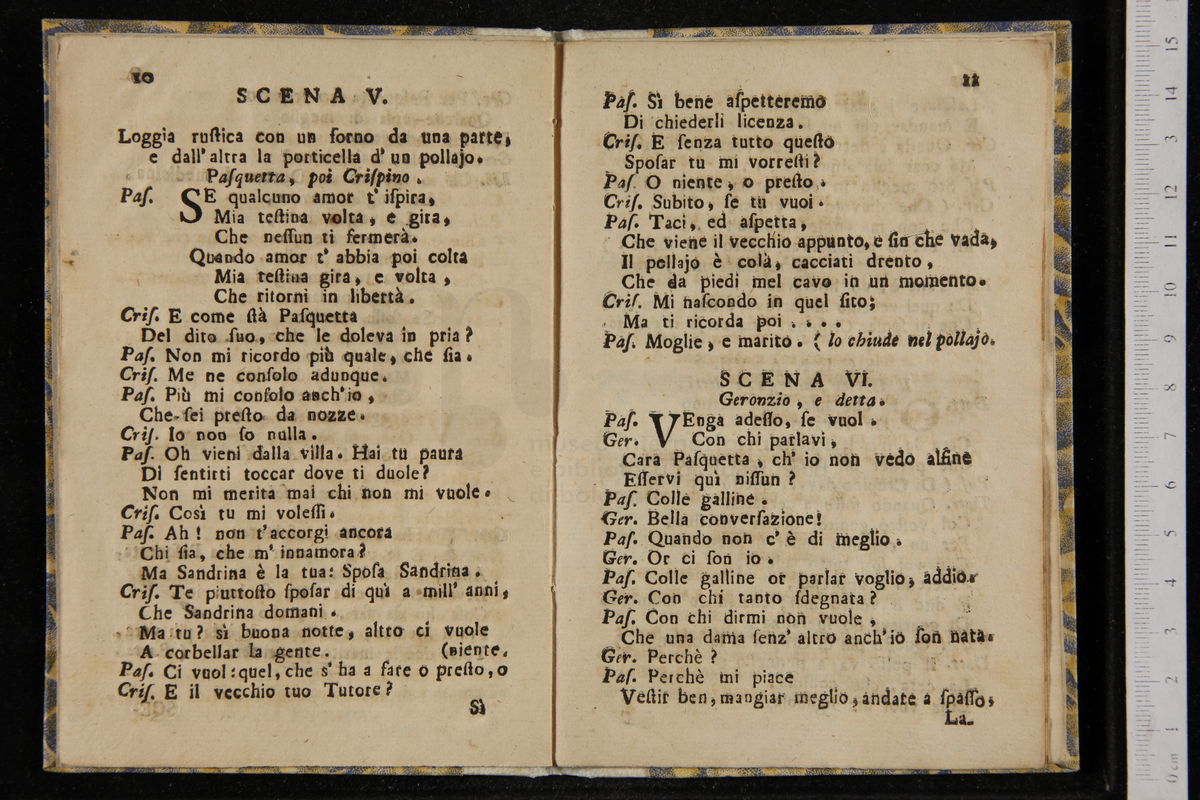 10
SCENA V.
Loggia ruſtica con un forno da una parte,
e dall'altra la porticella d'un pollajo.
Paſquetta, poi Criſpino.
Paſ. SE qualcuno amor t'iſpira,
Mia teſtina volta, e gira,
Che neſſun ti fermerà.
Quando amor t'abbia poi colta
Mia teſtina gira, e volta,
Che ritorni in libertà.
Criſ. E come ſtà Paſquetta
Del dito ſuo, che le doleva in pria?
Paſ. Non mi ricordo più quale, che ſia.
Criſ. Me ne conſolo adunque.
Paſ. Più mi conſolo anch'io,
Che ſei preſto da nozze.
Criſ. Io non ſo nulla.
Paſ. Oh vieni dalla villa. Hai tu paura
Di ſentirti toccar dove ti duole?
Non mi merita mai chi non mi vuole.
Criſ. Così tu mi voleſſi.
Paſ. Ah! non t'accorgi ancora
Chi ſia, che m'innamora?
Ma Sandrina è la tua: Spoſa Sandrina.
Criſ. Te piuttoſto ſpoſar di quì a mill' anni,
Che Sandrina domani.
Ma tu? sì buona notte, altro ci vuole
A corbellar la gente. (niente.
Paſ. Ci vuol: quel, che s'ha a fare o preſto, o
Criſ. E il vecchio tuo Tutore?
Sì
11
Paſ. Sì bene aſpetteremo
Di chiederli licenza.
Criſ. E ſenza tutto queſto
Spoſar tu mi vorreſti?
Paſ. O niente, o preſto.
Criſ. Subito, ſe tu vuoi.
Paſ. Taci, ed aſpetta,
Che viene il vecchio appunto, e ſin che vada,
Il pollajo è colà, cacciati drento,
Che da piedi mel cavo in un momento.
Criſ. Mi naſcondo in quel ſito;
Ma ti ricorda poi . . . .
Paſ. Moglie, e marito. (lo chiude nel pollajo.
SCENA VI.
Geronzio, e detta.
Paſ. VEnga adeſſo, ſe vuol.
Ger. Con chi parlavi,
Cara Paſquetta, ch' io non vedo alfine
Eſſervi quì niſſun?
Paſ. Colle galline.
Ger. Bella converſazione!
Paſ. Quando non c'è di meglio.
Ger. Or ci ſon io.
Paſ. Colle galline or parlar voglio, addio.
Ger. Con chi tanto ſdegnata?
Paſ. Con chi dirmi non vuole,
Che una dama ſenz' altro anch'io ſon nata.
Ger. Perchè?
Paſ. Perchè mi piace
Veſtir ben, mangiar meglio, andare a ſpaſſo,
La-